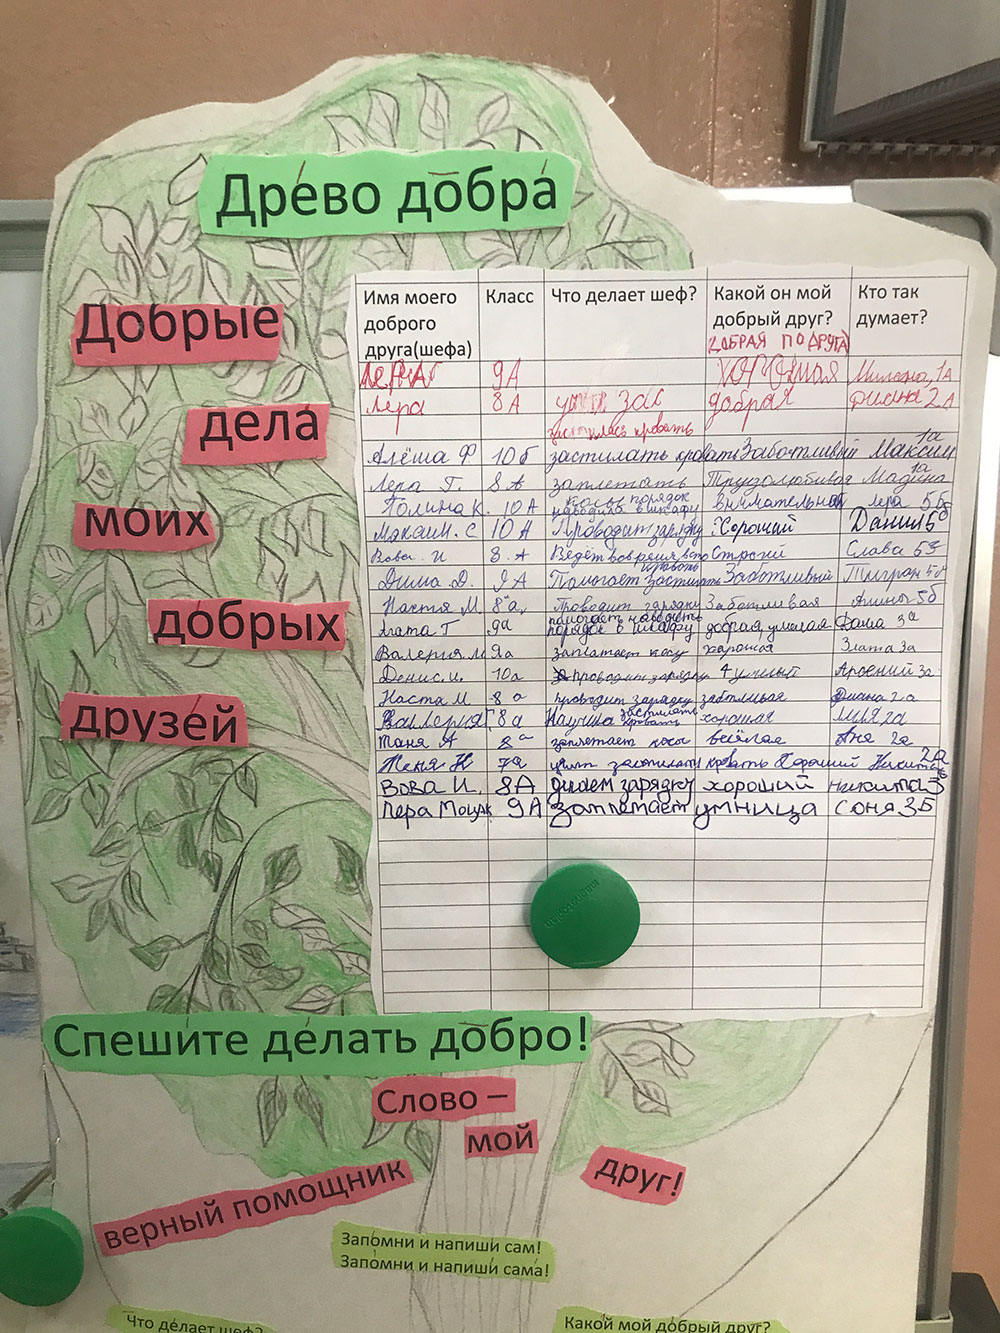 Древо добра
Добрые
дела
моих
добрых
друзей
Имя моего доброго друга(шефа) Класс Что делает шеф? Какой он мой добрый друг? Кто так думает?
ДОБРАЯ ПОДРУГА
9А Милена 1А
Лера 8А добрая Диана 2А
застилась кровать
Алёша Ф. 10б застилать кровать Заботливый Максим 1а
Лера Г. 8А заплетать косы Трудолюбивая Мадина 1а
Полина К. 10А порядок наводить в шкафу Внимательная Лера 5б
Максим. С 10А Проводит зарядку Хороший Данил 5б
Вова. И 8.А Ведёт вовремя Строгий Слава 5
Дима Д. 9А Помогает застилать кровать Заботливый Тигран 5
Настя М. 8а Проводит зарядку Заботливая 5б
Злата Т 9а помогает наводить порядок в шкафу добрая умная Даша 3а
Валерия М 9а заплетает косу хорошая Злата 3а
Денис. И. 10а проводит зарядку умный Арсений 3а
Настя М 8а проводит зарядку заботливая Диана 2а
Валерия Г 8а Научила застилать кровать хорошая Лия 2а
Таня А 8а заплетает косы весёлая Аня 2а
Женя Н 7а учит застилать кровать Хороший Никита 2а
Вова И. 8А делаем зарядку хороший никита 3
Лера Моцак 9А Заплетает умница соня 3Б
Спешите делать добро!
Слово –
мой
верный помощник
друг!
Запомни и напиши сам!
Запомни и напиши сама!
Что делает шеф?
Какой мой добрый друг?